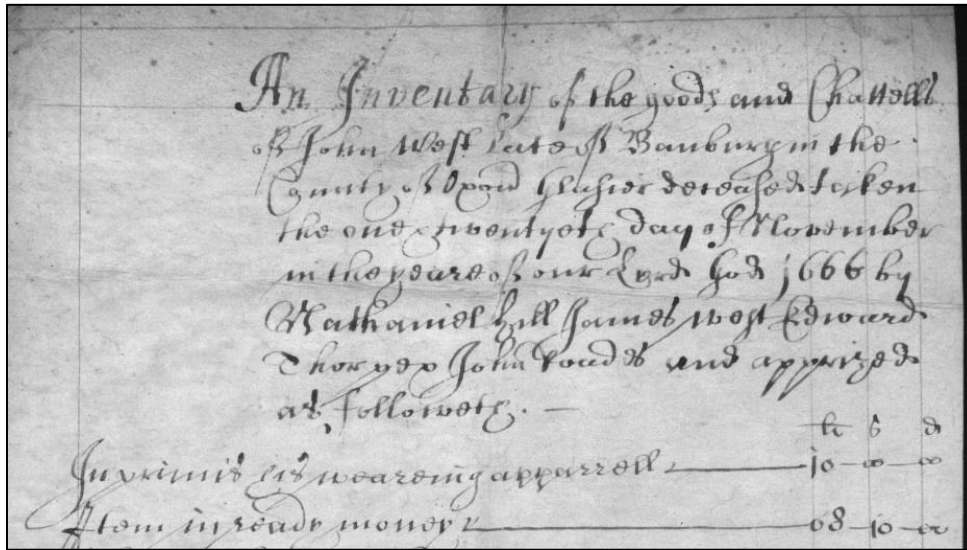 An Inventary of the goods and Chattells
of John West Late of Banbury in the
County of Oxon Glasier deceased taken
the one & twentyeth day of November
in the yeare of our Lord God 1666 by
Nathaniel Hill James West Edward
John and apprized
as followeth. —
li s d
Inprimis his weareing apparrell — 10 — 00 — 00
Item in ready money — 08 — 10 — 00